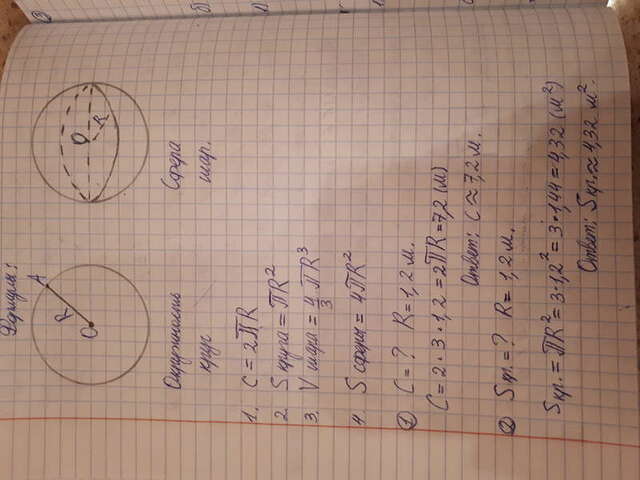 Формулы:
A
R
O
O
R
Окружность
Сфера
круг
шар.
1. C = 2πR
2. S круга = πR²
3. V шара = 4/3 πR³
4. S сферы = 4πR²
① C = ? R = 1,2 м.
C = 2 · 3 · 1,2 = 2πR = 7,2 (м)
Ответ: C ≈ 7,2 м.
② S кр. = ? R = 1,2 м.
S кр. = πR² = 3 · 1,2² = 3 · 1,44 = 4,32 (м²)
Ответ: S кр. ≈ 4,32 м².